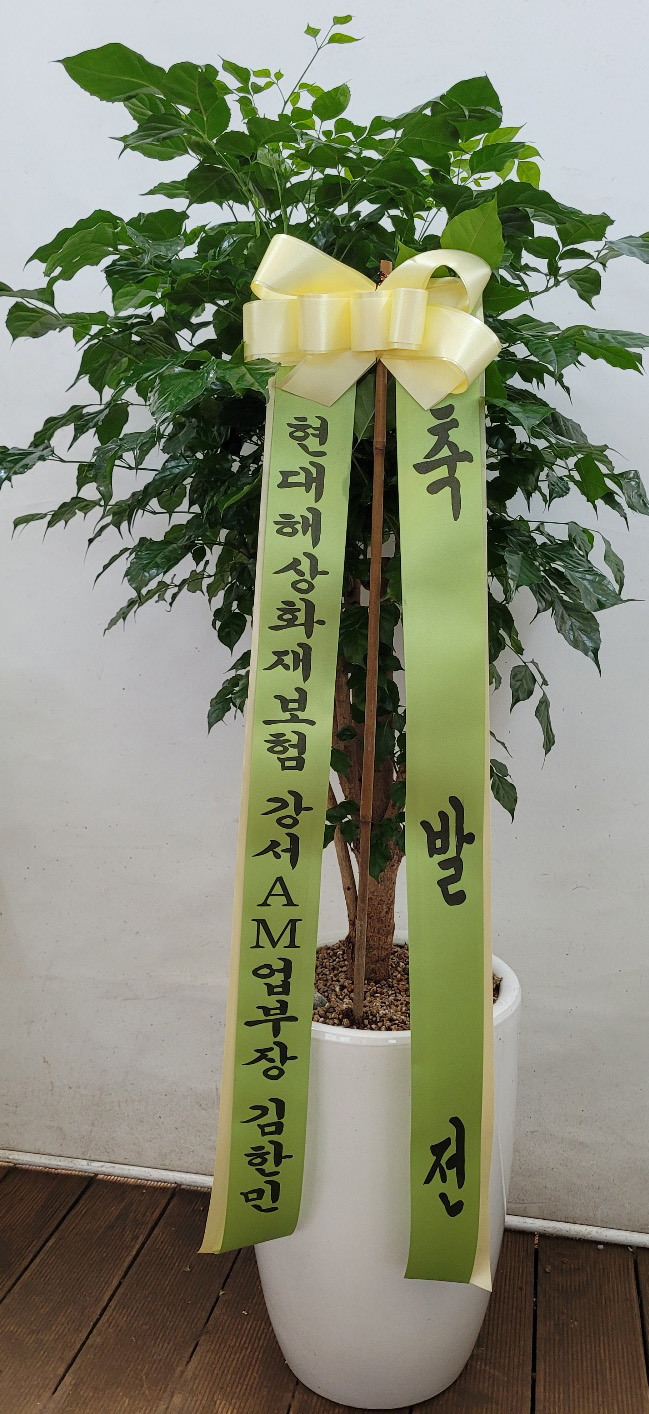 축 발전
현대해상화재보험 강서AM업부장 김한민